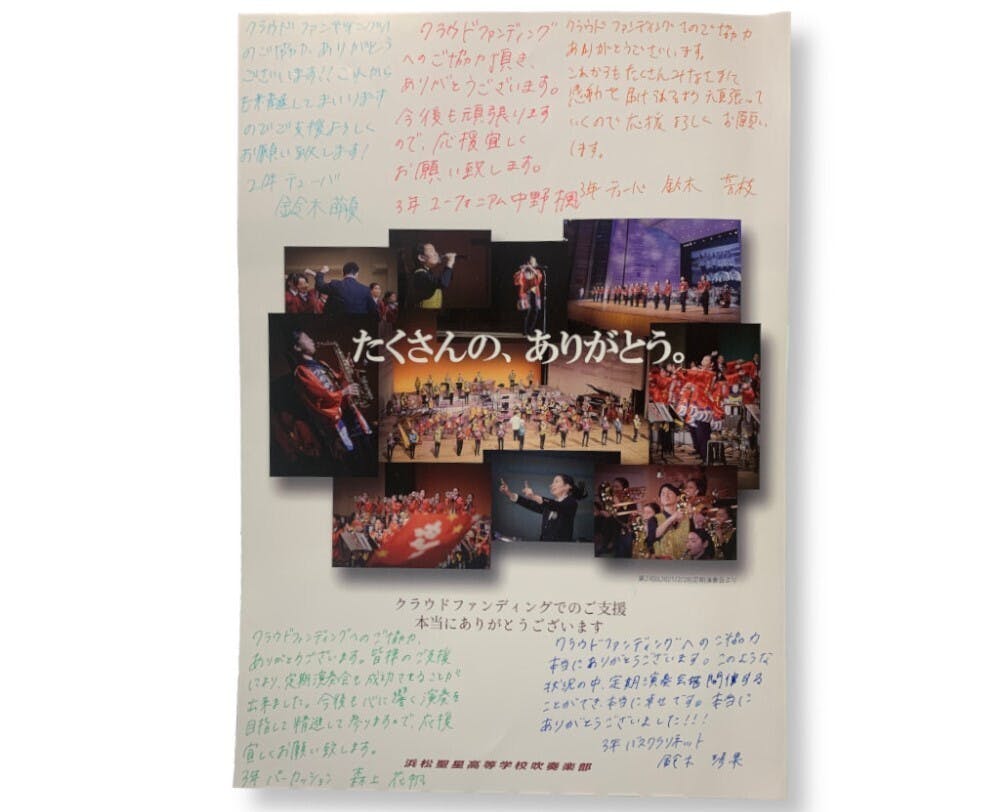 クラウドファンディング
のご協力、ありがとう
ございます!!これから
も精進してまいります
のでご支援よろしく
お願い致します!
2年 テューバ
鈴木
クラウドファンディング
へのご協力頂き、
ありがとうございます。
今後も頑張ります
ので、応援宜しく
お願い致します。
3年 ユーフォニアム 中野 楓
クラウドファンディングのご協力
ありがとうございます。
これからもたくさんみなさまに
感動を届けられるよう頑張って
いくので応援よろしくお願い
します。
3年 テューバ 鈴木
たくさんの、ありがとう。
定期演奏会より
クラウドファンディングでのご支援
本当にありがとうございます
クラウドファンディングへのご協力、
ありがとうございます。皆様のご支援
により、定期演奏会を成功させることが
出来ました。今後も心に響く演奏を
目指して精進して参りますので、応援
宜しくお願い致します。
3年 パーカッション 森上
クラウドファンディングへのご協力
本当にありがとうございます。このような
状況の中、定期演奏会を開催する
ことができ、本当に幸せです。本当に
ありがとうございました!!!
3年 バスクラリネット
鈴木
浜松聖星高等学校吹奏楽部